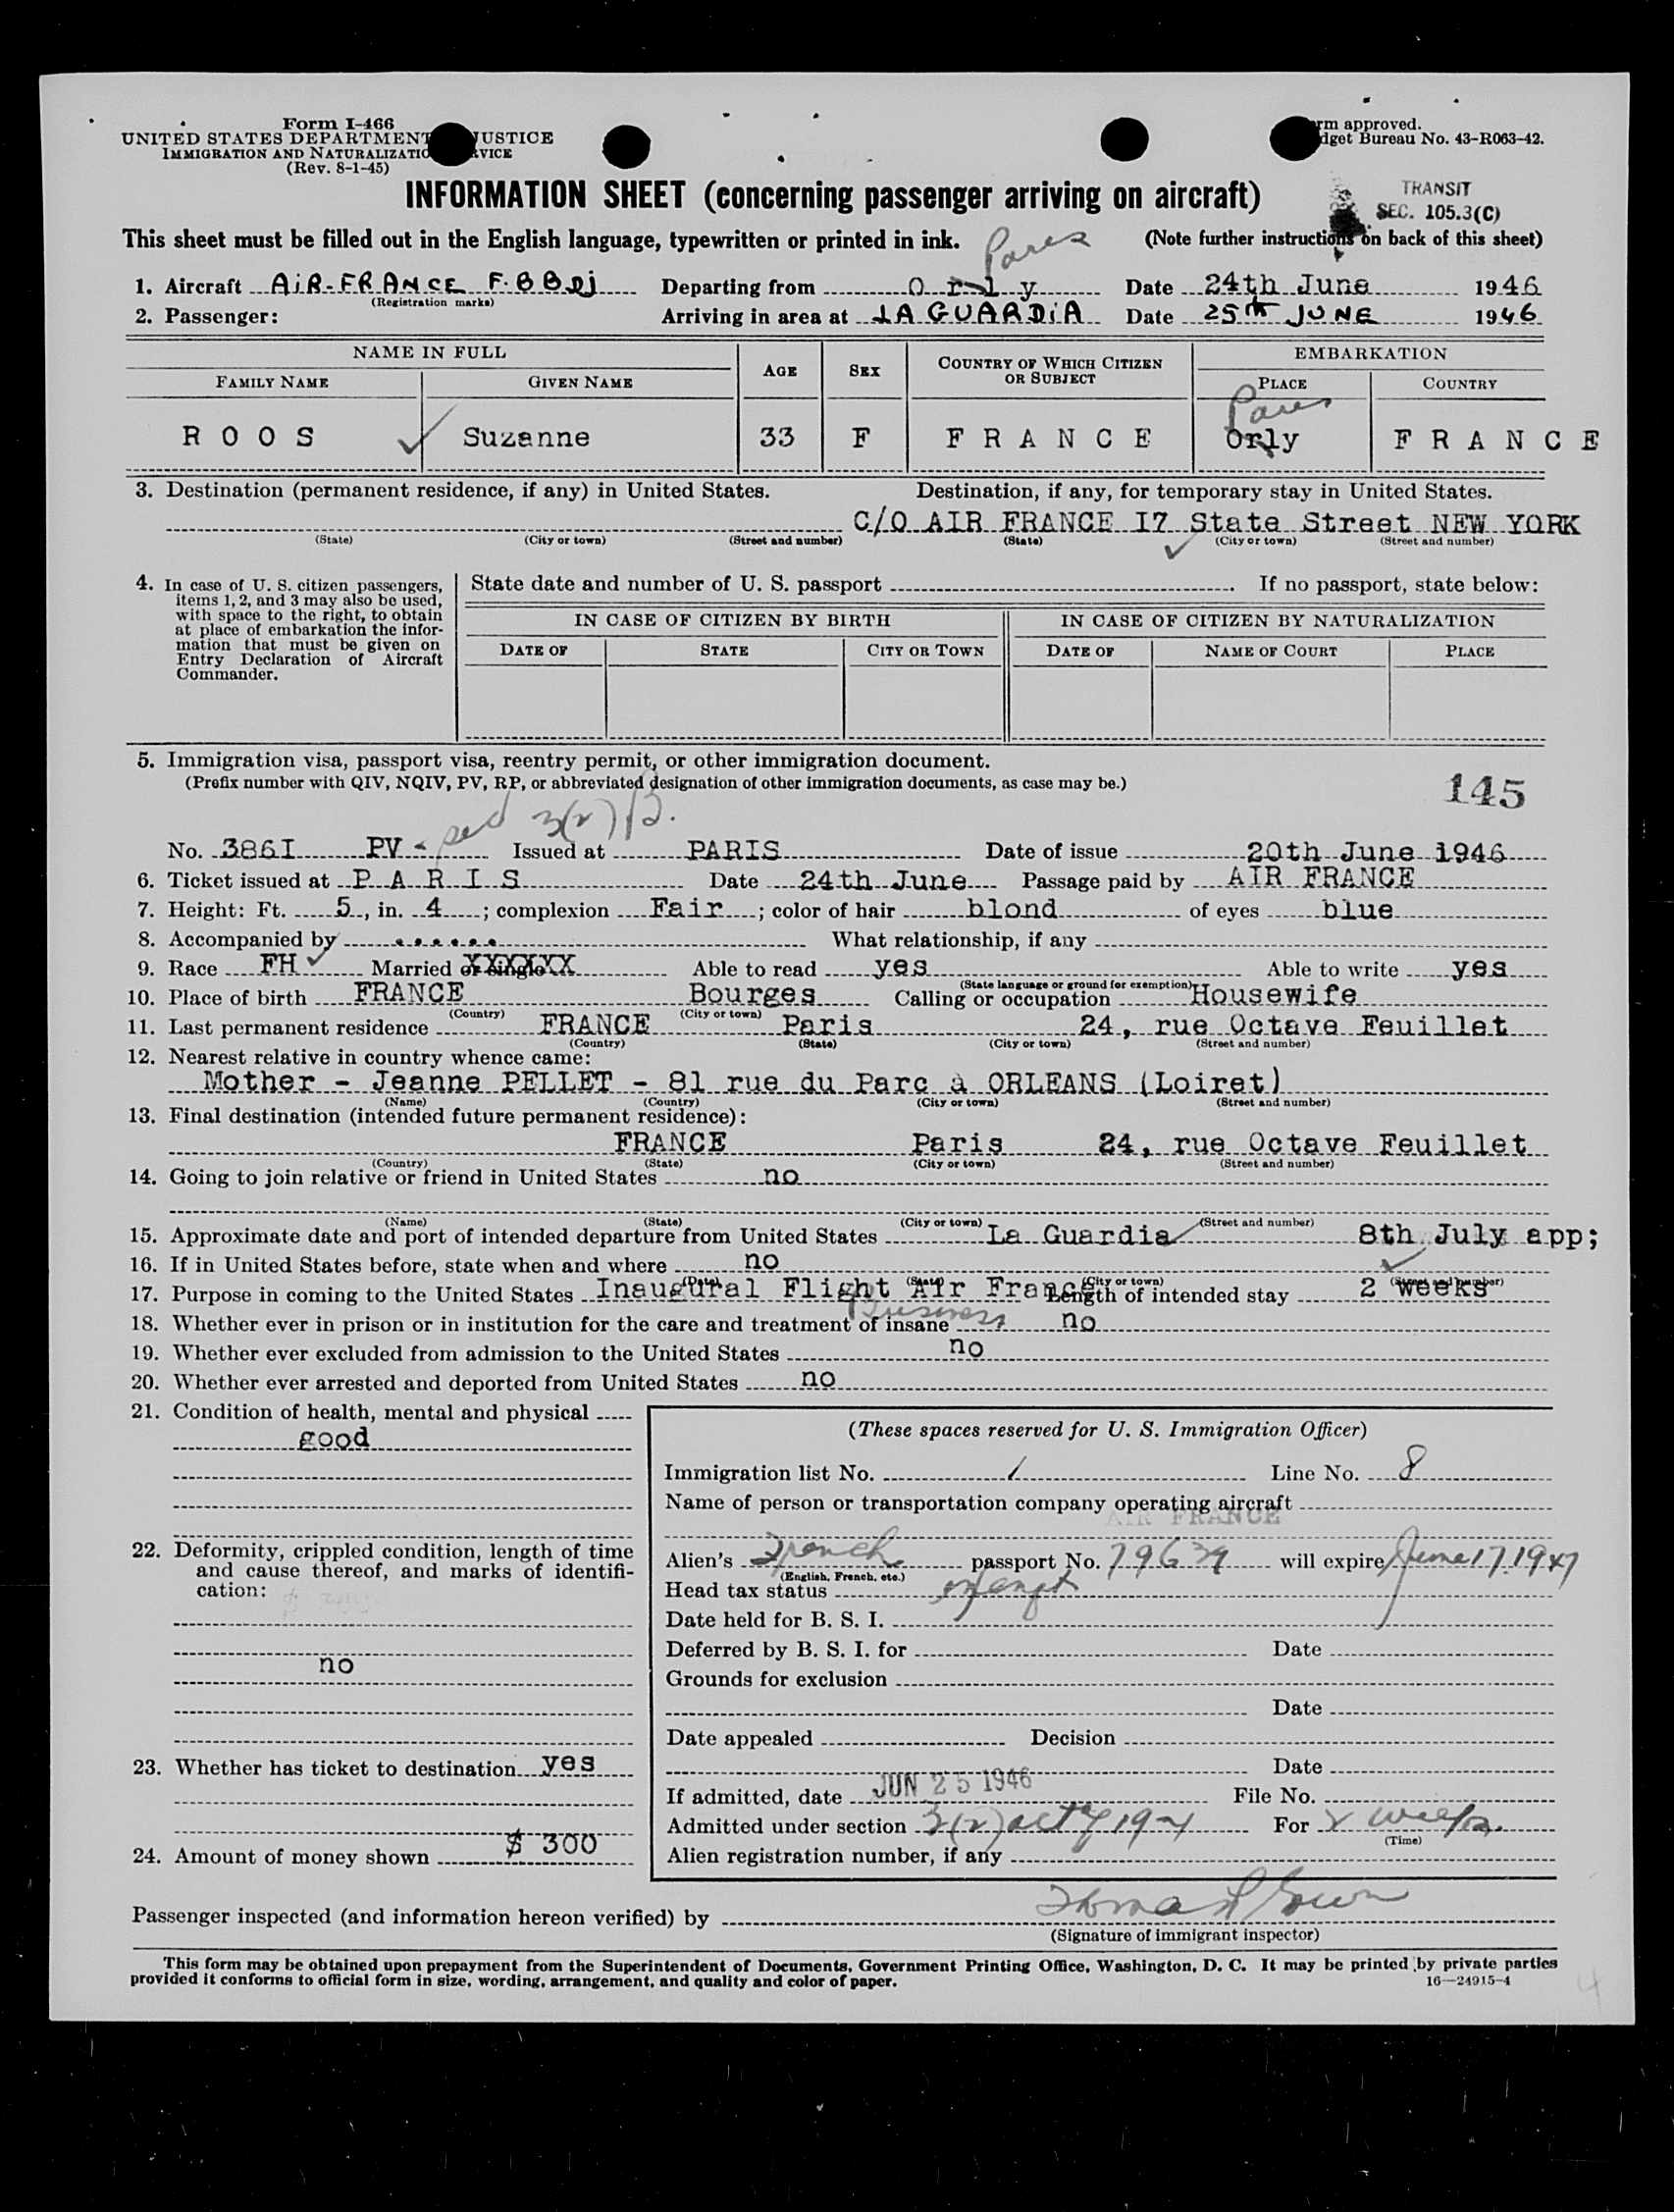 Form I-466
UNITED STATES DEPARTMENT JUSTICE
IMMIGRATION AND NATURALIZATIO VICE
(Rev. 8-1-45)
rm approved.
dget Bureau No. 43-R063-42.
INFORMATION SHEET (concerning passenger arriving on aircraft)
TRANSIT
SEC. 105.3(C)
This sheet must be filled out in the English language, typewritten or printed in ink.
(Note further instructions on back of this sheet)
Paris
1. Aircraft AIR-FRANCE F.BBDJ Departing from Orly Date 24th June 1946
(Registration marks)
2. Passenger: Arriving in area at LA GUARDIA Date 25th JUNE 1946
NAME IN FULL AGE SEX COUNTRY OF WHICH CITIZEN OR SUBJECT EMBARKATION
FAMILY NAME GIVEN NAME PLACE COUNTRY
Paris
ROOS Suzanne 33 F FRANCE Orly FRANCE
3. Destination (permanent residence, if any) in United States. Destination, if any, for temporary stay in United States.
C/O AIR FRANCE I7 State Street NEW YORK
(State) (City or town) (Street and number) (State) (City or town) (Street and number)
4. In case of U. S. citizen passengers,
items 1, 2, and 3 may also be used,
with space to the right, to obtain
at place of embarkation the infor-
mation that must be given on
Entry Declaration of Aircraft
Commander.
State date and number of U. S. passport If no passport, state below:
IN CASE OF CITIZEN BY BIRTH IN CASE OF CITIZEN BY NATURALIZATION
DATE OF STATE CITY OR TOWN DATE OF NAME OF COURT PLACE
5. Immigration visa, passport visa, reentry permit, or other immigration document.
(Prefix number with QIV, NQIV, PV, RP, or abbreviated designation of other immigration documents, as case may be.)
145
3(2)B.
No. 386I PV - Issued at PARIS Date of issue 20th June 1946
6. Ticket issued at PARIS Date 24th June Passage paid by AIR FRANCE
7. Height: Ft. 5, in. 4; complexion Fair; color of hair blond of eyes blue
8. Accompanied by ...... What relationship, if any
9. Race FH Married or single XXXXXX Able to read yes Able to write yes
(State language or ground for exemption)
10. Place of birth FRANCE Bourges Calling or occupation Housewife
(Country) (City or town)
11. Last permanent residence FRANCE Paris 24, rue Octave Feuillet
(Country) (State) (City or town) (Street and number)
12. Nearest relative in country whence came:
Mother - Jeanne PELLET - 81 rue du Parc à ORLEANS (Loiret)
(Name) (Country) (City or town) (Street and number)
13. Final destination (intended future permanent residence):
FRANCE Paris 24, rue Octave Feuillet
(Country) (State) (City or town) (Street and number)
14. Going to join relative or friend in United States no
(Name) (State) (City or town) (Street and number)
15. Approximate date and port of intended departure from United States La Guardia 8th July app;
16. If in United States before, state when and where no
(Date) (State) (City or town) (Street and number)
17. Purpose in coming to the United States Inaugural Flight Air France Length of intended stay 2 weeks
Business
18. Whether ever in prison or in institution for the care and treatment of insane no
19. Whether ever excluded from admission to the United States no
20. Whether ever arrested and deported from United States no
21. Condition of health, mental and physical
good
22. Deformity, crippled condition, length of time
and cause thereof, and marks of identifi-
cation:
no
23. Whether has ticket to destination yes
24. Amount of money shown $ 300
(These spaces reserved for U. S. Immigration Officer)
Immigration list No. 1 Line No. 8
Name of person or transportation company operating aircraft
AIR FRANCE
Alien's French passport No. 79639 will expire June 17 1947
(English, French, etc.)
Head tax status exempt
Date held for B. S. I.
Deferred by B. S. I. for Date
Grounds for exclusion
Date
Date appealed Decision
Date
If admitted, date JUN 25 1946 File No.
Admitted under section 3(2) act of 1924 For 2 weeks.
(Time)
Alien registration number, if any
Passenger inspected (and information hereon verified) by
(Signature of immigrant inspector)
This form may be obtained upon prepayment from the Superintendent of Documents, Government Printing Office, Washington, D. C. It may be printed by private parties
provided it conforms to official form in size, wording, arrangement, and quality and color of paper.
16—24915-4
4